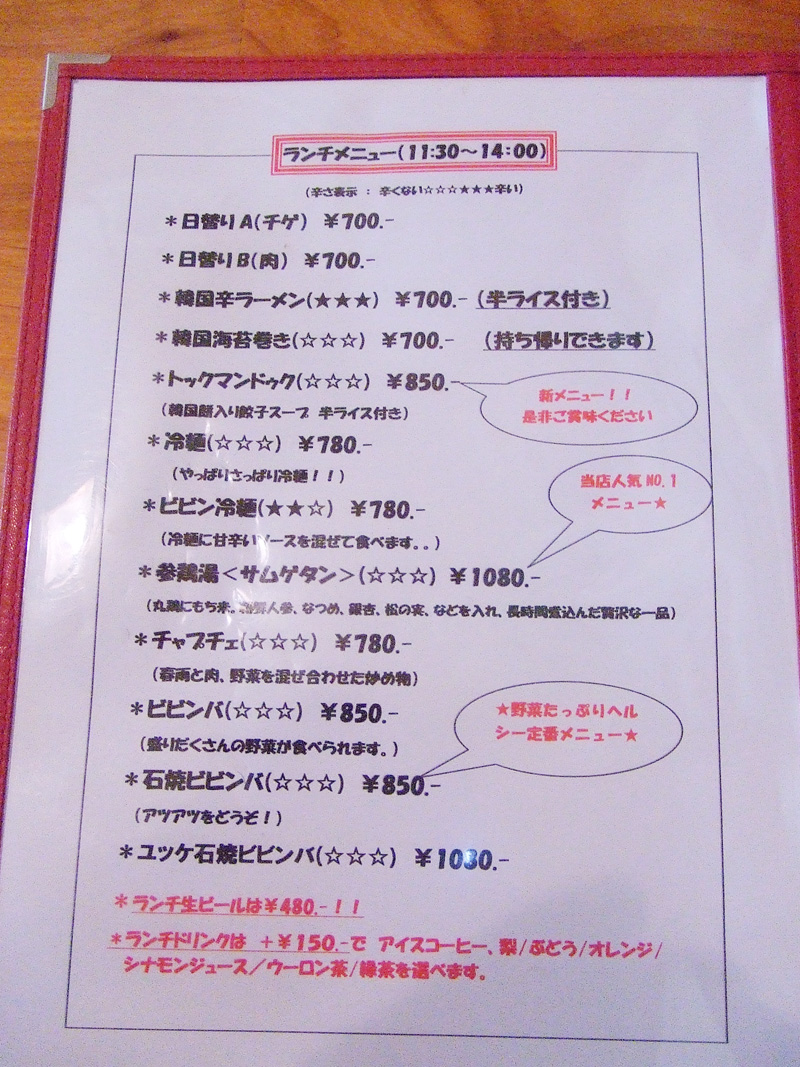 ランチメニュー(11:30～14:00)
(辛さ表示 : 辛くない☆☆☆★★★辛い)
*日替りA(チゲ) ¥700.-
*日替りB(肉) ¥700.-
*韓国辛ラーメン(★★★) ¥700.- (半ライス付き)
*韓国海苔巻き(☆☆☆) ¥700.- (持ち帰りできます)
*トックマンドゥク(☆☆☆) ¥850.-
(韓国餅入り餃子スープ 半ライス付き)
新メニュー!!
是非ご賞味ください
*冷麺(☆☆☆) ¥780.-
(やっぱりさっぱり冷麺!!)
当店人気NO.1
メニュー★
*ビビン冷麺(★★☆) ¥780.-
(冷麺に甘辛いソースを混ぜて食べます。。)
*参鶏湯<サムゲタン>(☆☆☆) ¥1080.-
(丸鶏にもち米、人参、なつめ、銀杏、松の実、などを入れ、長時間煮込んだ贅沢な一品)
*チャプチェ(☆☆☆) ¥780.-
(春雨と肉、野菜を混ぜ合わせた炒め物)
*ビビンバ(☆☆☆) ¥850.-
(盛りだくさんの野菜が食べられます。)
★野菜たっぷりヘル
シー定番メニュー★
*石焼ビビンバ(☆☆☆) ¥850.-
(アツアツをどうぞ!)
*ユッケ石焼ビビンバ(☆☆☆) ¥1080.-
*ランチ生ビールは¥480.-!!
*ランチドリンクは +¥150.-で アイスコーヒー、梨/ぶどう/オレンジ/
シナモンジュース/ウーロン茶/緑茶を選べます。